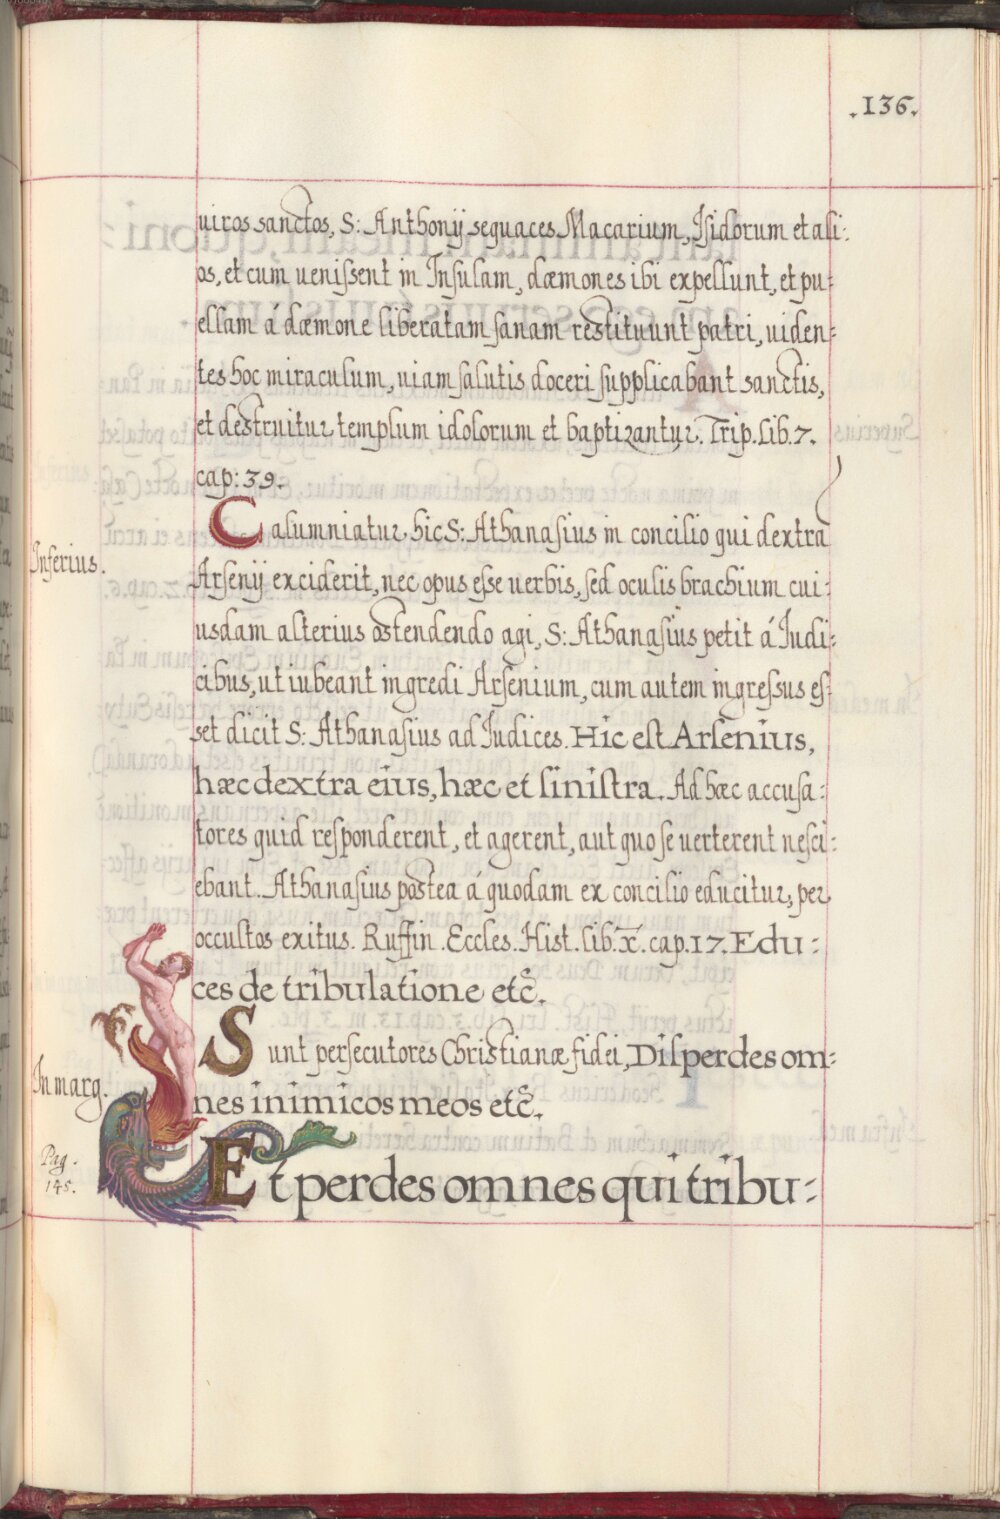 .136.
uiros sanctos, S: Anthonij sequaces Macarium, Isidorum et ali:
os, et cum uenissent in Insulam, dæmones ibi expellunt, et pu:
ellam á dæmone liberatam sanam restituunt patri, uiden:
tes hoc miraculum, uiam salutis doceri supplicabant sanctis,
et destruitur templum idolorum et baptizantur. Trip. Lib. 7.
cap: 39.
Calumniatur hic S: Athanasius in concilio qui dextra
Inferius.
Arsenij exciderit, nec opus esse uerbis, sed oculis brachium cui:
usdam alterius ostendendo agi, S: Athanasius petit á Iudi:
cibus, ut iubeant ingredi Arsenium, cum autem ingressus es:
set dicit S: Athanasius ad Iudices. Hic est Arsenius,
hæc dextra eius, hæc et sinistra. Ad hæc accusa:
tores quid responderent, et agerent, aut quo se uerterent nesci:
ebant. Athanasius postea á quodam ex concilio educitur, per
occultos exitus. Ruffin. Eccles. Hist. lib. X. cap. 17. Edu:
ces de tribulatione etc.
Sunt persecutores Christianæ fidei, Disperdes om:
In marg.
nes inimicos meos etc.
Pag.
145.
Et perdes omnes qui tribu: